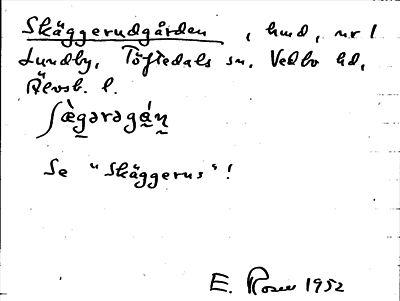 Skäggerudgården, hmd, nr 1
Lundby, Töftedals sn, Vedbo hd,
Älvsb. l.
ʃæ̀gərəgá̱ṉ
Se "Skäggerus"!
E. Rosen 1952